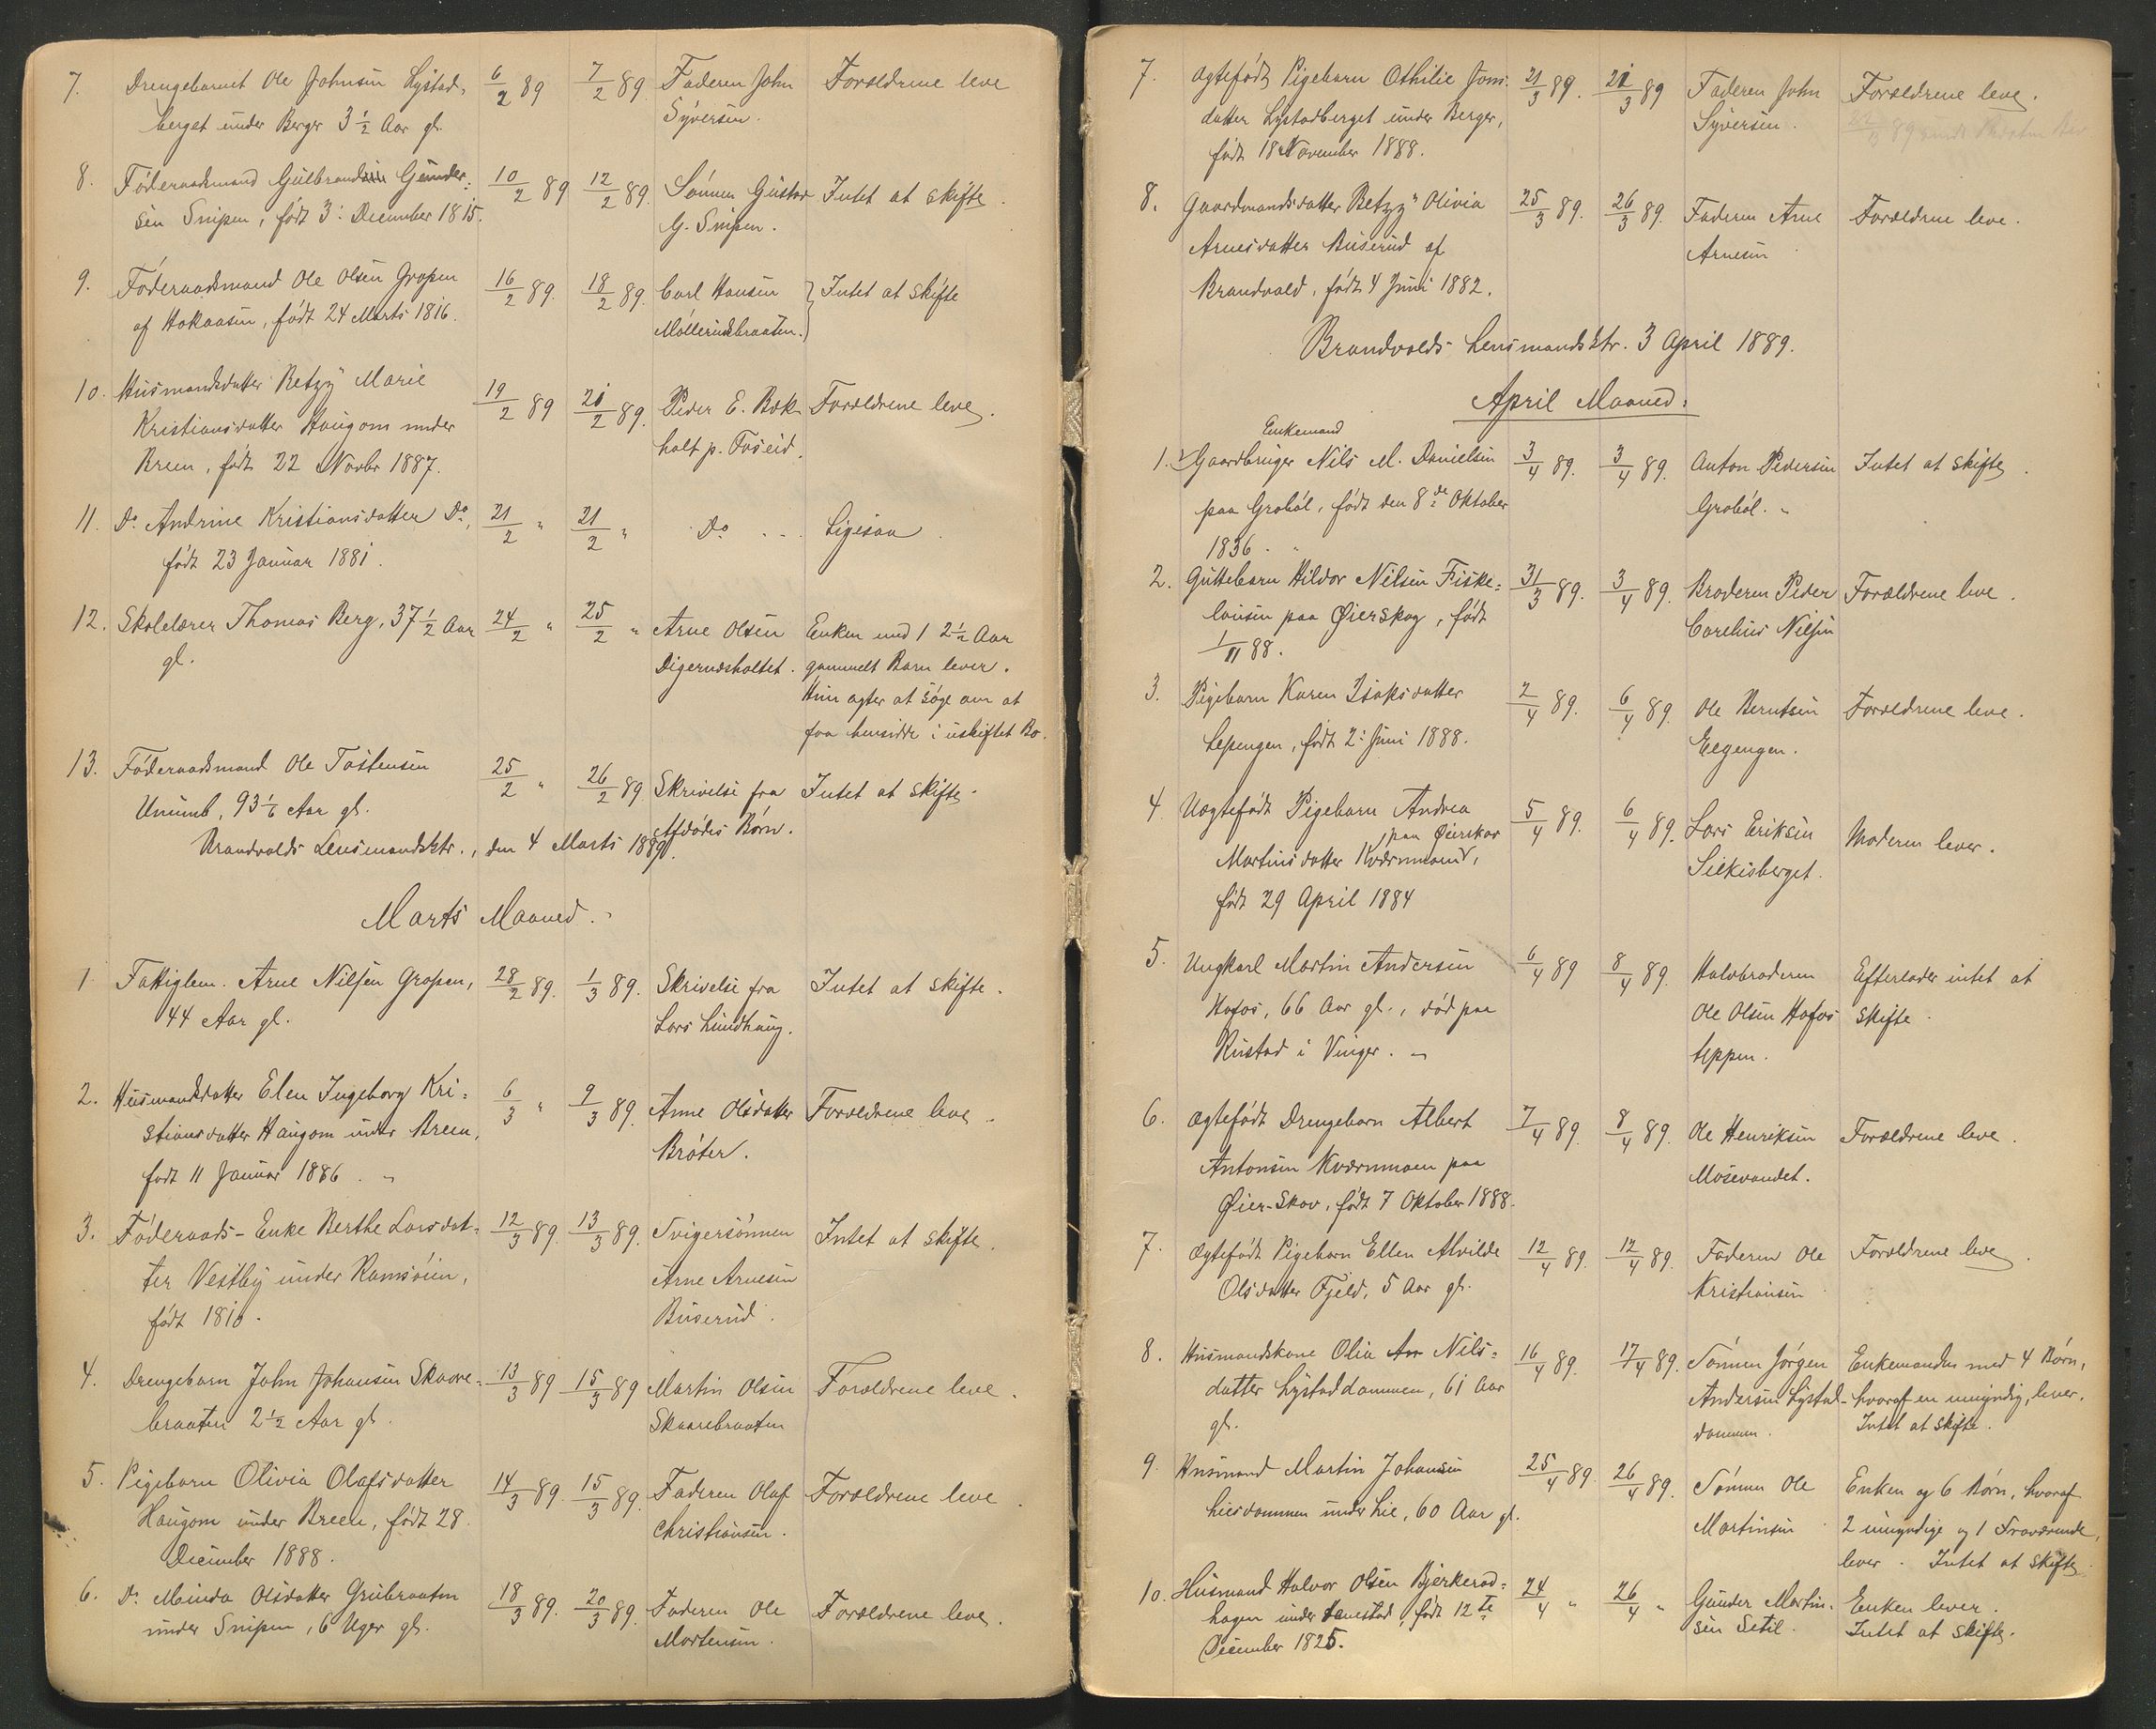 7. Drengebarnet Ole Johnsen Lystad- 6/2 89 7/2 89 Faderen John Forældrene leve
berget under Berger 3 1/2 Aar gl. Syversen.
8. Föderaadsmand Gulbrand Gunder- 10/2 89 12/2 89. Sönnen Gustav Intet at skifte.
sen Snipen, født 3: December 1815. G. Snipen.
9. Föderaadsmand Ole Olsen Gropen 16/2 89. 18/2 89. Carl Hansen } Intet at skifte
af Hokaasen, født 24 Marts 1816. Møllerudsbraaten.
10. Husmandsdatter Betzy Marie 19/2 89 21/2 89. Peder E. Bok- Forældrene leve.
Kristiansdatter Haugom under holt p. Foseid.
Breen, født 22 Novbr 1887.
11. Do Andrine Kristiansdatter Do, 21/2 " 21/2 " Do Ligesaa.
født 23 Januar 1881.
12. Skolelærer Thomas Berg, 37 1/2 Aar 24/2 " 25/2 " Arne Olsen Enken med 1 2 1/2 Aar
gl. Digerudsholtet. gammelt Barn lever.
Hun agter at søge om at
faa hensidde i uskiftet Bo.
13. Föderaadsmand Ole Tostensen 25/2 " 26/2 89 Skrivelse fra Intet at skifte.
93 1/6 Aar gl. Afdödes Børn.
Brandvolds Lensmandsktr., den 4 Marts 1889.
Marts Maaned.
1 Fattiglem. Arne Nilsen Gropen, 28/2 89. 1/3 89. Skrivelse fra Intet at skifte.
44 Aar gl. Lars Lundhaug.
2. Husmandsdatter Elen Ingeborg Kri- 6/3 " 9/3 89. Anne Olsdatter Forældrene leve.
stiansdatter Haugom under Breen, Bröter.
født 11 Januar 1886.
3. Föderaads-Enke Berthe Larsdat- 12/3 89. 13/3 89. Svigersönnen Intet at skifte.
ter Vestby under Ramsöien, Arne Arnesen
født 1810. Buserud.
4. Drengebarn John Johansen Skaare- 13/3 89 15/3 89 Martin Olsen Forældrene leve.
braaten 2 1/2 Aar gl. Skaarebraaten
5. Pigebarn Olivia Olafsdatter 14/3 89. 15/3 89. Faderen Olaf Forældrene leve.
Haugom under Breen, født 28 Christiansen.
December 1888.
6. Do Minda Olsdatter Grubraaten 18/3 89. 20/3 89. Faderen Ole Forældrene leve.
under Snipen, 6 Uger gl. Mortensen.
7. Ægtefødt Pigebarn Othilie Jons- 21/3 89. 21/3 89 Faderen John Forældrene leve.
datter Lystadberget under Berger, Syversen.
født 18 November 1888.
8. Gaardmandsdatter Betzy Olivia 25/3 89. 26/3 89. Faderen Arne Forældrene leve.
Arnesdatter Buserud af Arnesen
Brandvold, født 4 Juni 1882.
Brandvolds Lensmandsktr. 3 April 1889.
April Maaned.
Enkemand
1. Gaardbruger Nils M. Danielsen 3/4 89. 3/4 89. Anton Pedersen Intet at skifte.
paa Grøbøl, født den 8de Oktober Grøbøl.
1836.
2. Guttebarn Hildor Nilsen Fiske- 31/3 89. 3/4 89. Broderen Peder Forældrene leve.
løisen paa Øierskog, født Carelius Nilsen
1/11 88.
3. Pigebarn Karen Isaksdatter 2/4 89. 6/4 89. Ole Berntsen Forældrene leve.
Lepengen, født 2: Juni 1888.
4. Uægtefødt Pigebarn Andrea 5/4 89. 6/4 89. Lars Eriksen Moderen lever.
paa Øierskov
Martinsdatter Kværnmoen, Silkisberget.
født 29 April 1884
5. Ungkarl Martin Andersen 6/4 89 8/4 89. Halvbroderen Efterlader intet at
Hofos, 66 Aar gl., død paa Ole Olsen Hofos skifte.
Rustad i Vinger.
6. Ægtefødt Drengebarn Albert 7/4 89. 8/4 89. Ole Henriksen Forældrene leve.
Antonsen Kværnmoen paa Mosevandet.
Øier-Skov, født 7 Oktober 1888.
7. Ægtefødt Pigebarn Ellen Alvilde 12/4 89. 12/4 89. Faderen Ole Forældrene leve.
Olsdatter Fjeld, 5 Aar gl. Kristiansen
8. Husmandskone Olia Nils- 16/4 89. 17/4 89. Sönnen Jörgen Enkemanden med 4 Børn,
datter Lystaddammen, 61 Aar Andersen Lystad- hvoraf en umyndig, lever.
gl. dammen. Intet at skifte.
9. Husmand Martin Johansen 25/4 89. 26/4 89. Sönnen Ole Enken og 6 Børn, hvoraf
Liesdammen under Lie, 60 Aar gl. Martinsen 2 umyndige og 1 Fraværende,
lever. Intet at skifte.
10. Husmand Halvor Olsen Bjerkerud- 24/4 " 26/4 " Gunder Martin- Enken lever.
hagen under født 12te sen Setil. Intet at skifte.
December 1825.